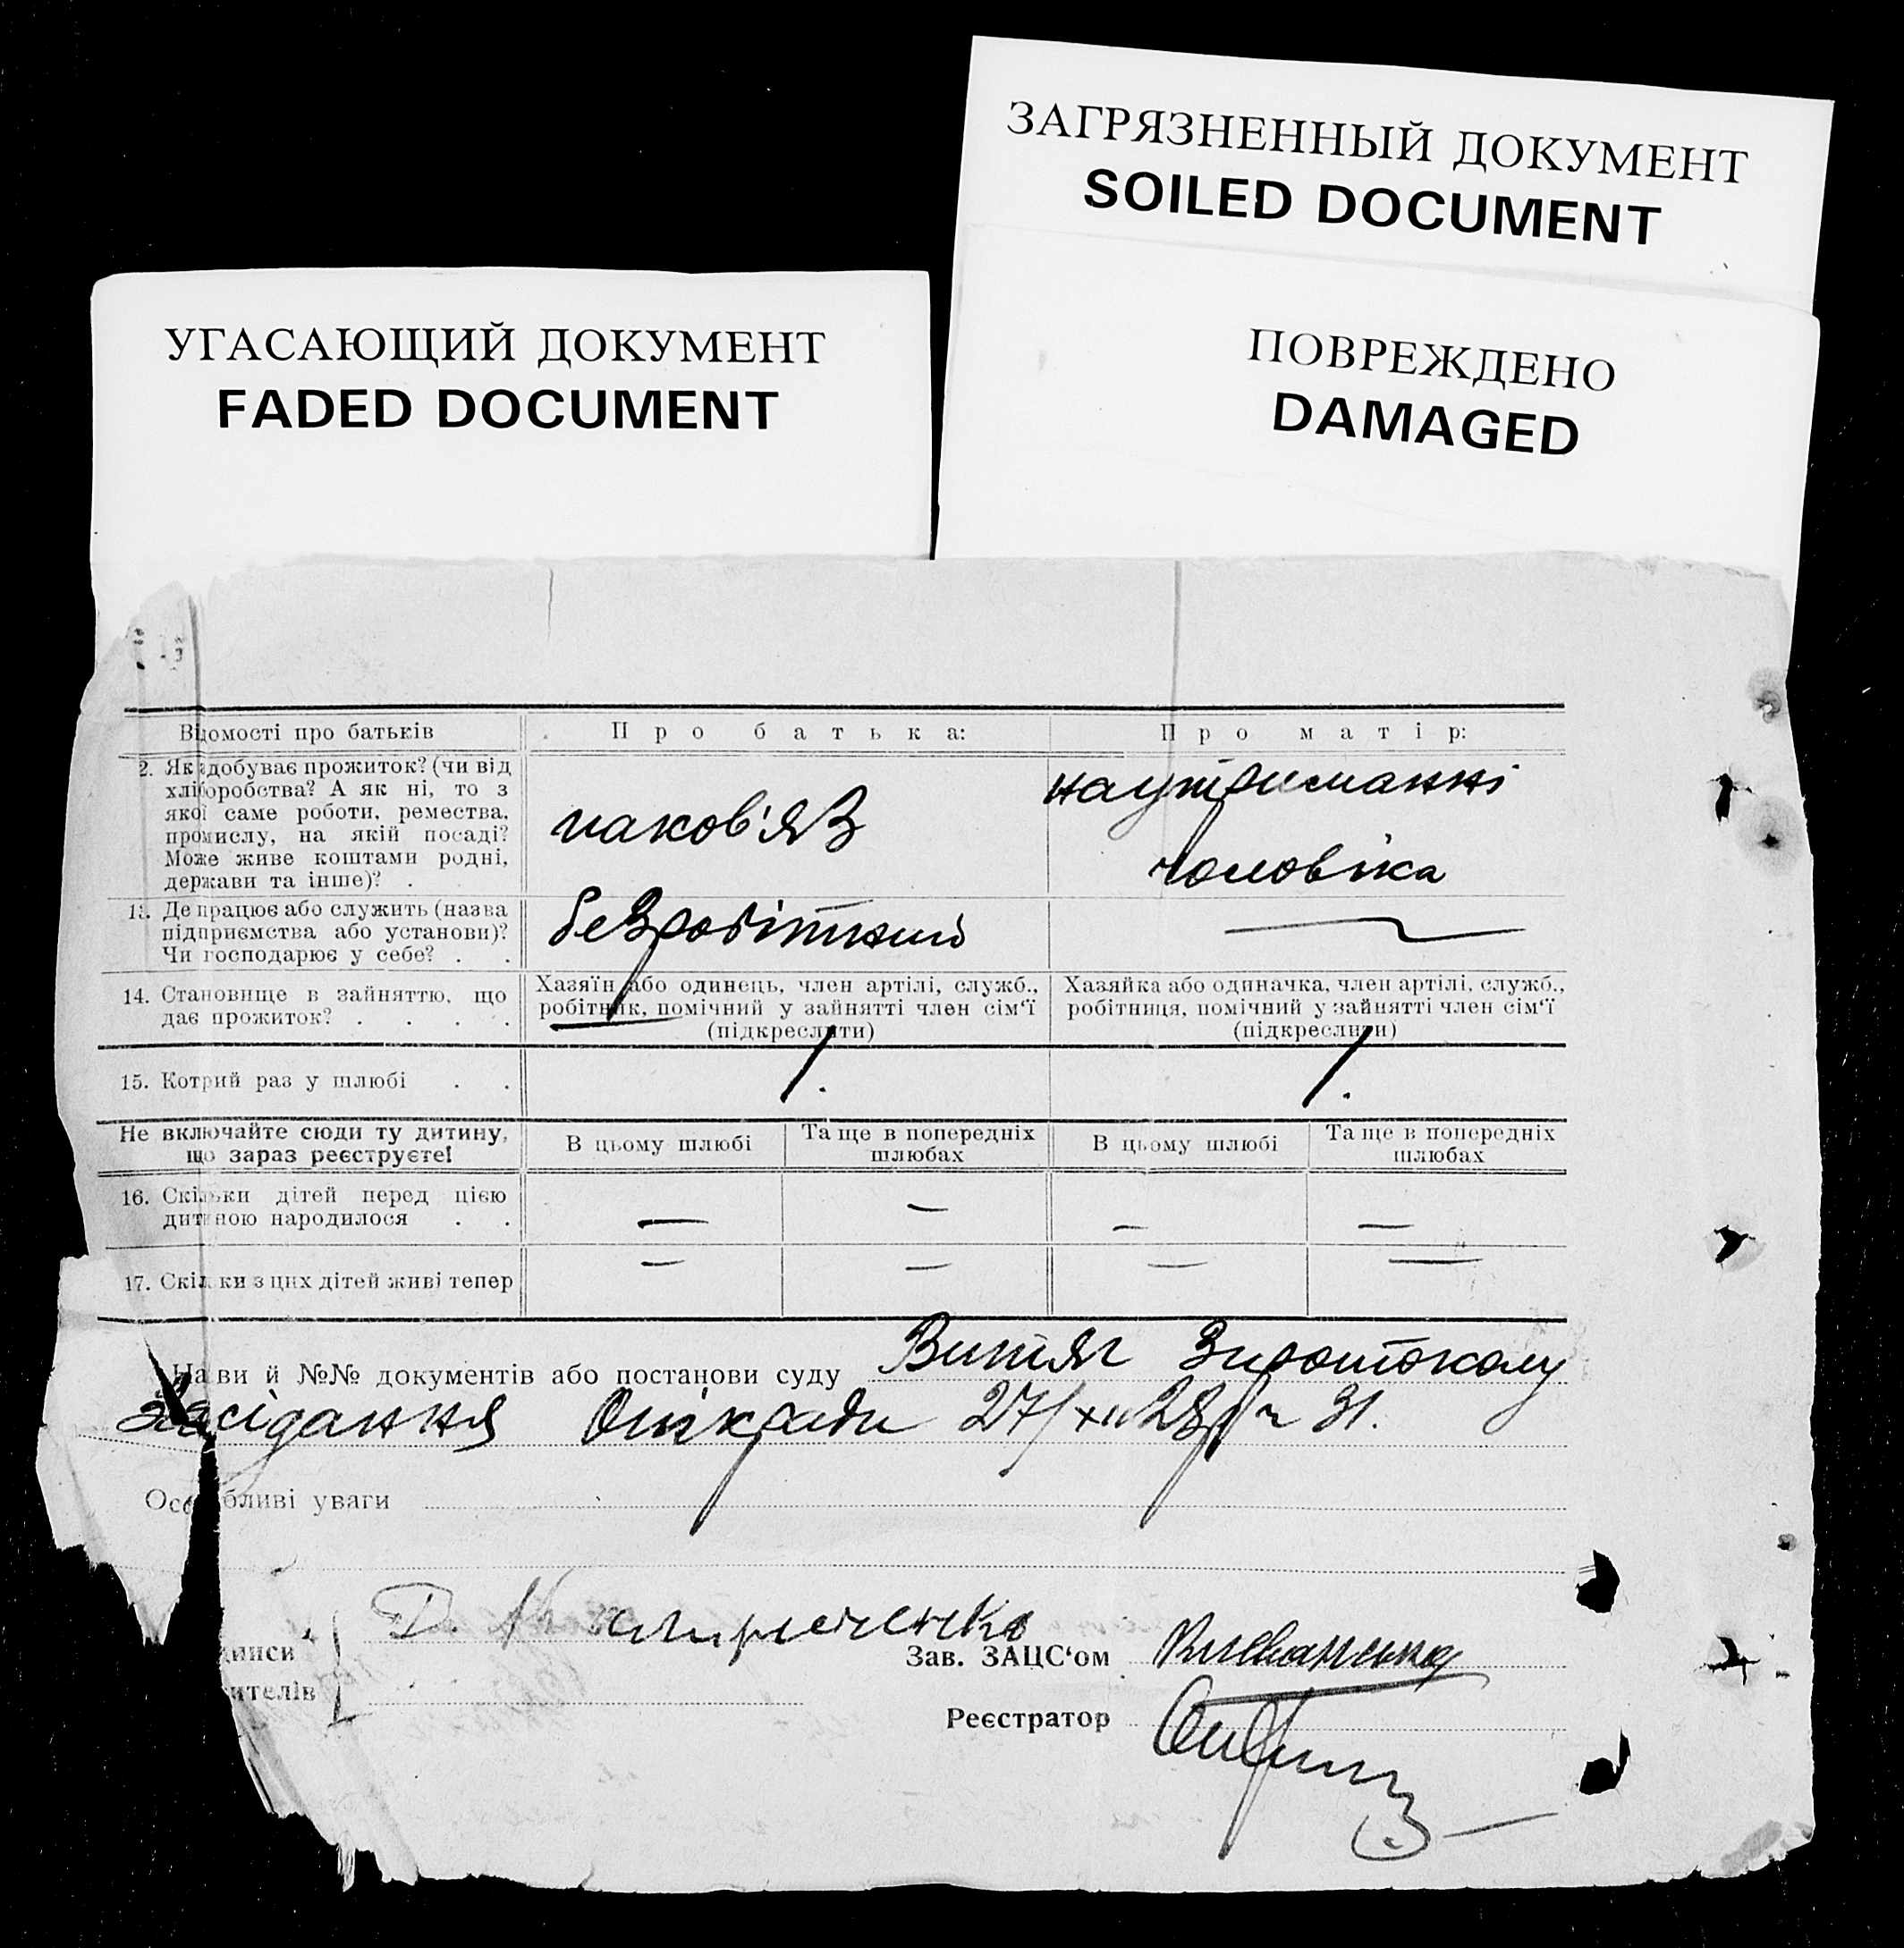 ЗАГРЯЗНЕННЫЙ ДОКУМЕНТ
SOILED DOCUMENT
УГАСАЮЩИЙ ДОКУМЕНТ
FADED DOCUMENT
ПОВРЕЖДЕНО
DAMAGED
Відомості про батьків
Про батька:
Про матір:
2. Як здобуває прожиток? (чи від
хліборобства? А як ні, то з
якої саме роботи, ремества,
промислу, на якій посаді?
Може живе коштами родні,
держави та інше)? .
паков'яз
на утриманні
чоловіка
13. Де працює або служить (назва
підприємства або установи)?
Чи господарює у себе? . .
безробітний
—
14. Становище в зайняттю, що
дає прожиток? . . . .
Хазяїн або одинець, член артілі, служб.,
робітник, помічний у зайнятті член сім'ї
(підкреслити)
Хазяйка або одиначка, член артілі, служб.,
робітниця, помічний у зайнятті член сім'ї
(підкреслити)
15. Котрий раз у шлюбі . .
1.
1.
Не включайте сюди ту дитину,
що зараз реєструєте!
В цьому шлюбі
Та ще в попередніх
шлюбах
В цьому шлюбі
Та ще в попередніх
шлюбах
16. Скільки дітей перед цією
дитиною народилося . .
— — — —
17. Скільки з цих дітей живі тепер
— — — —
Назви й №№ документів або постанови суду Витяг з протоколу
засідання Опікради 27/XII 28 р ч 31.
Особливі уваги
дписи
ителів
Зав. ЗАЦС'ом
Реєстратор